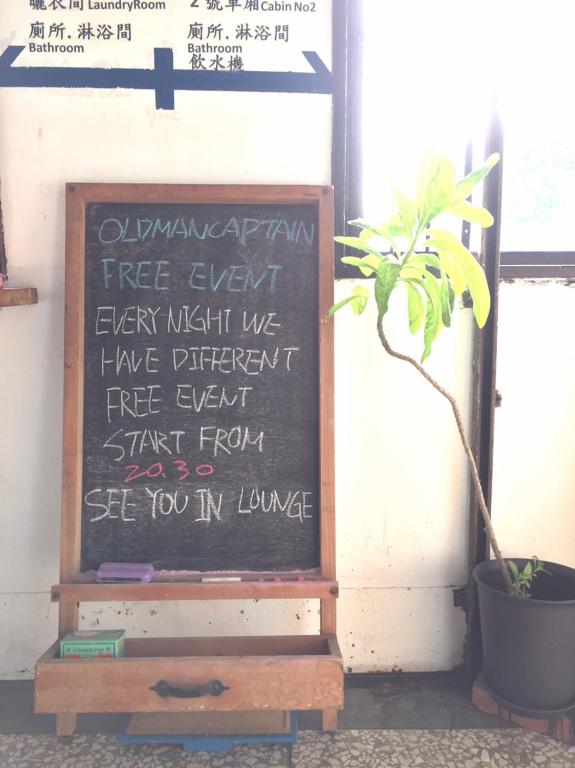 曬衣間 LaundryRoom
2 號車廂 Cabin No2
廁所.淋浴間
Bathroom
廁所.淋浴間
Bathroom
飲水機
OLDMANCAPTAIN
FREE EVENT
EVERY NIGHT WE
HAVE DIFFERENT
FREE EVENT
START FROM
20.30
SEE YOU IN LOUNGE